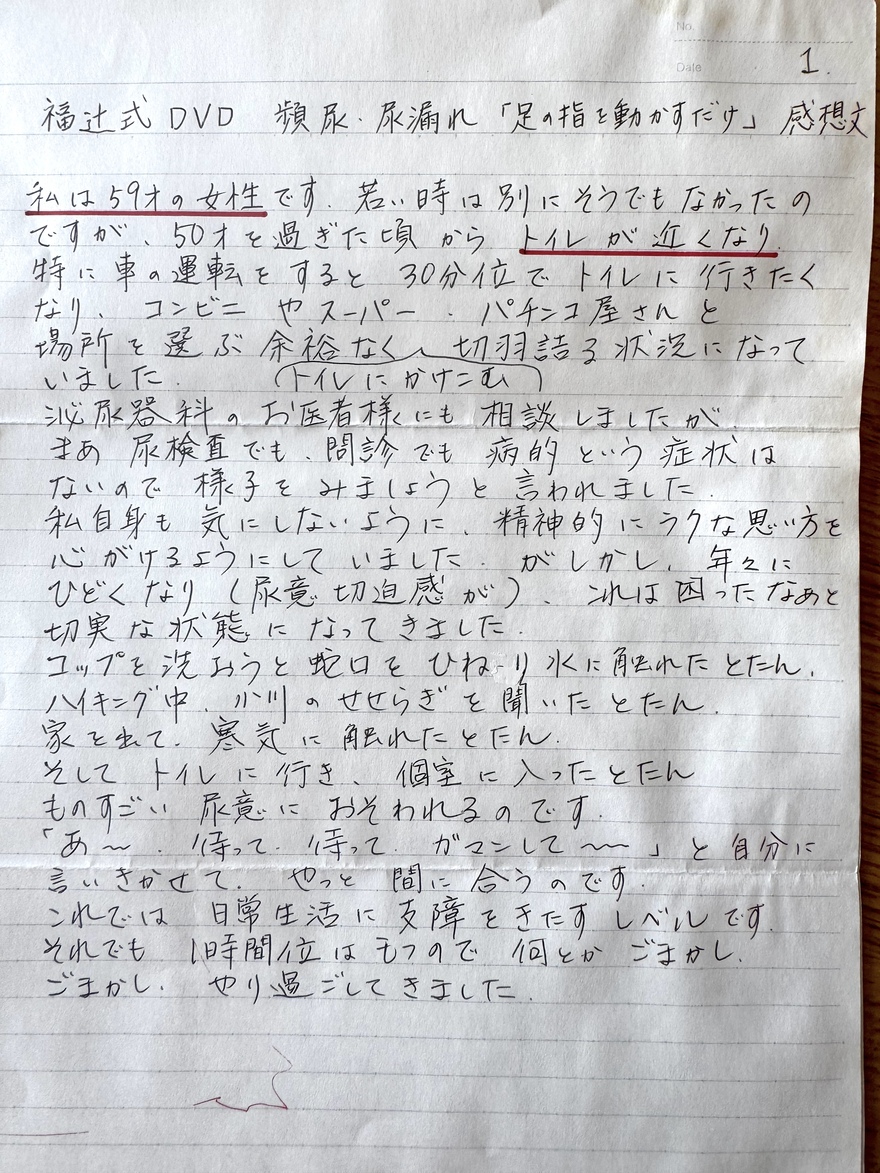 No.
Date
1.
福辻式 DVD 頻尿・尿漏れ 「足の指を動かすだけ」 感想文
私は59才の女性です. 若い時は別にそうでもなかったの
ですが、50才を過ぎた頃から トイレが近くなり
特に車の運転をすると 30分位で トイレに行きたく
なり、 コンビニ や スーパー 、 パチンコ屋さんと
場所を選ぶ余裕なく、 切羽詰る状況になって
いました. (トイレにかけこむ)
泌尿器科のお医者様にも 相談しましたが、
まあ 尿検査でも、問診でも 病的という症状は
ないので 様子をみましょうと言われました.
私自身も 気にしないように、精神的にラクな思い方を
心がけるようにしていました. がしかし、年々に
ひどくなり (尿意切迫感が)、これは困ったなあと
切実な状態になってきました.
コップを洗おうと蛇口をひねり水に触れたとたん、
ハイキング中、小川のせせらぎを聞いたとたん、
家を出て、寒気に触れたとたん、
そして トイレに行き、個室に入ったとたん
ものすごい 尿意に おそわれるのです.
「あ〜、待って、待って、ガマンして〜〜」と自分に
言いきかせて、 やっと 間に合うのです.
これでは 日常生活に支障をきたすレベルです.
それでも 1時間位はもつので 何とか ごまかし、
ごまかし、 やり過ごしてきました.